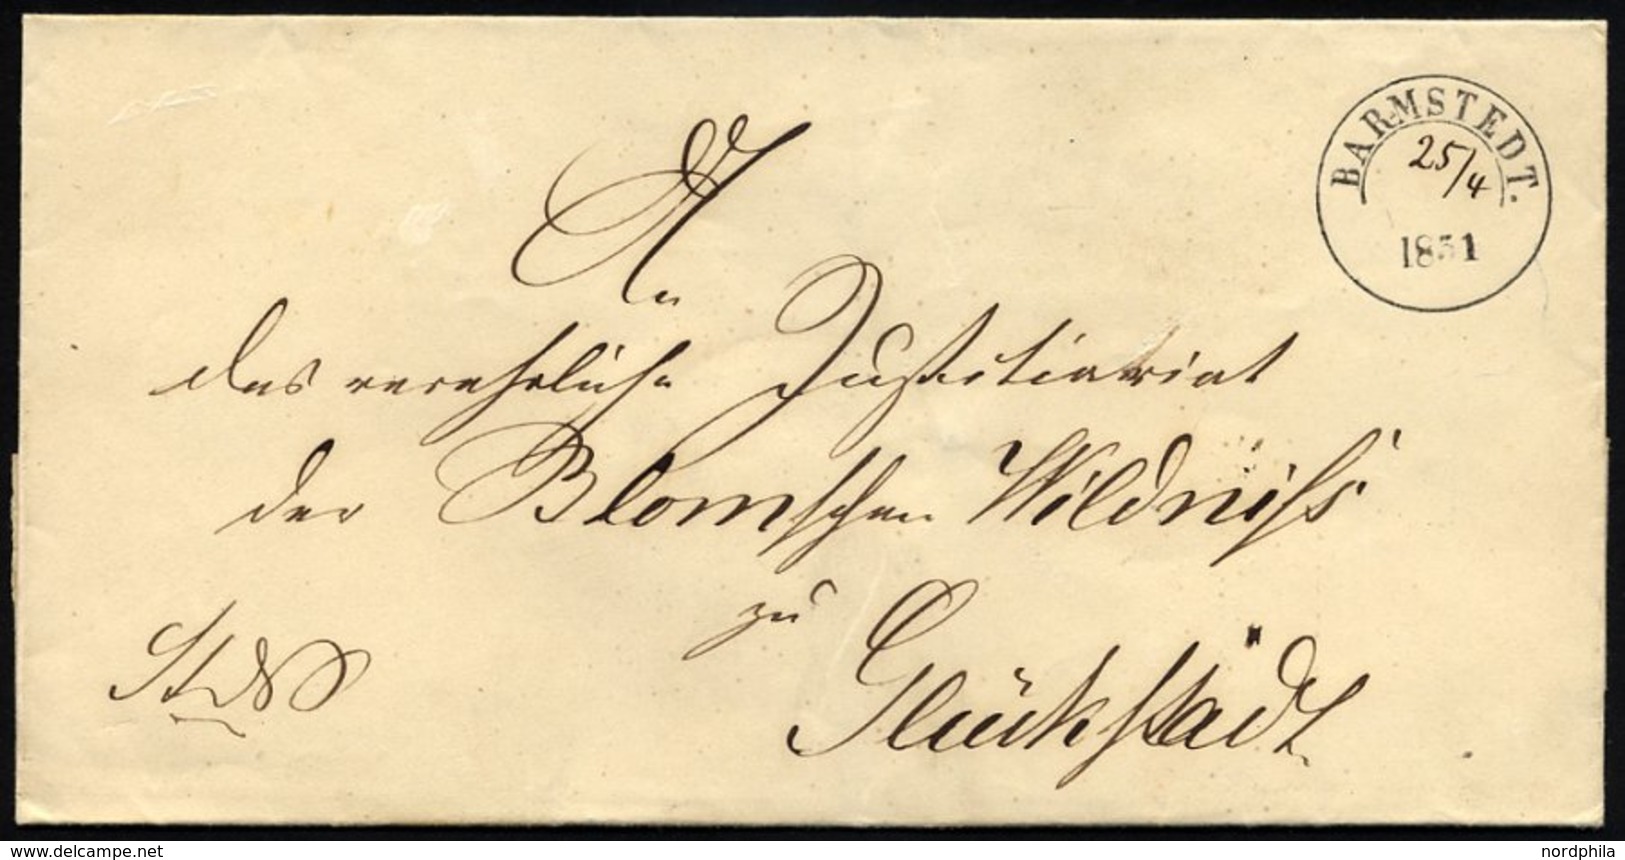 BARMSTEDT.
25/4
1851
An
das verehrliche Justitiariat
der Blomschen Wildniss
zu
Glückstadt
delcampe.net
nordphila